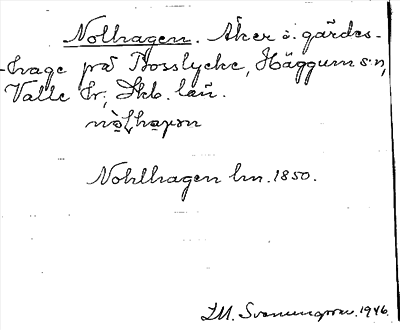 Nolhagen. Åker o. gärdes-
-hage på Bosslycke, Häggum s:n,
Valle hr; Skb. län.
Nohlhagen lm. 1850.
I.M. Svenungsson. 1946.